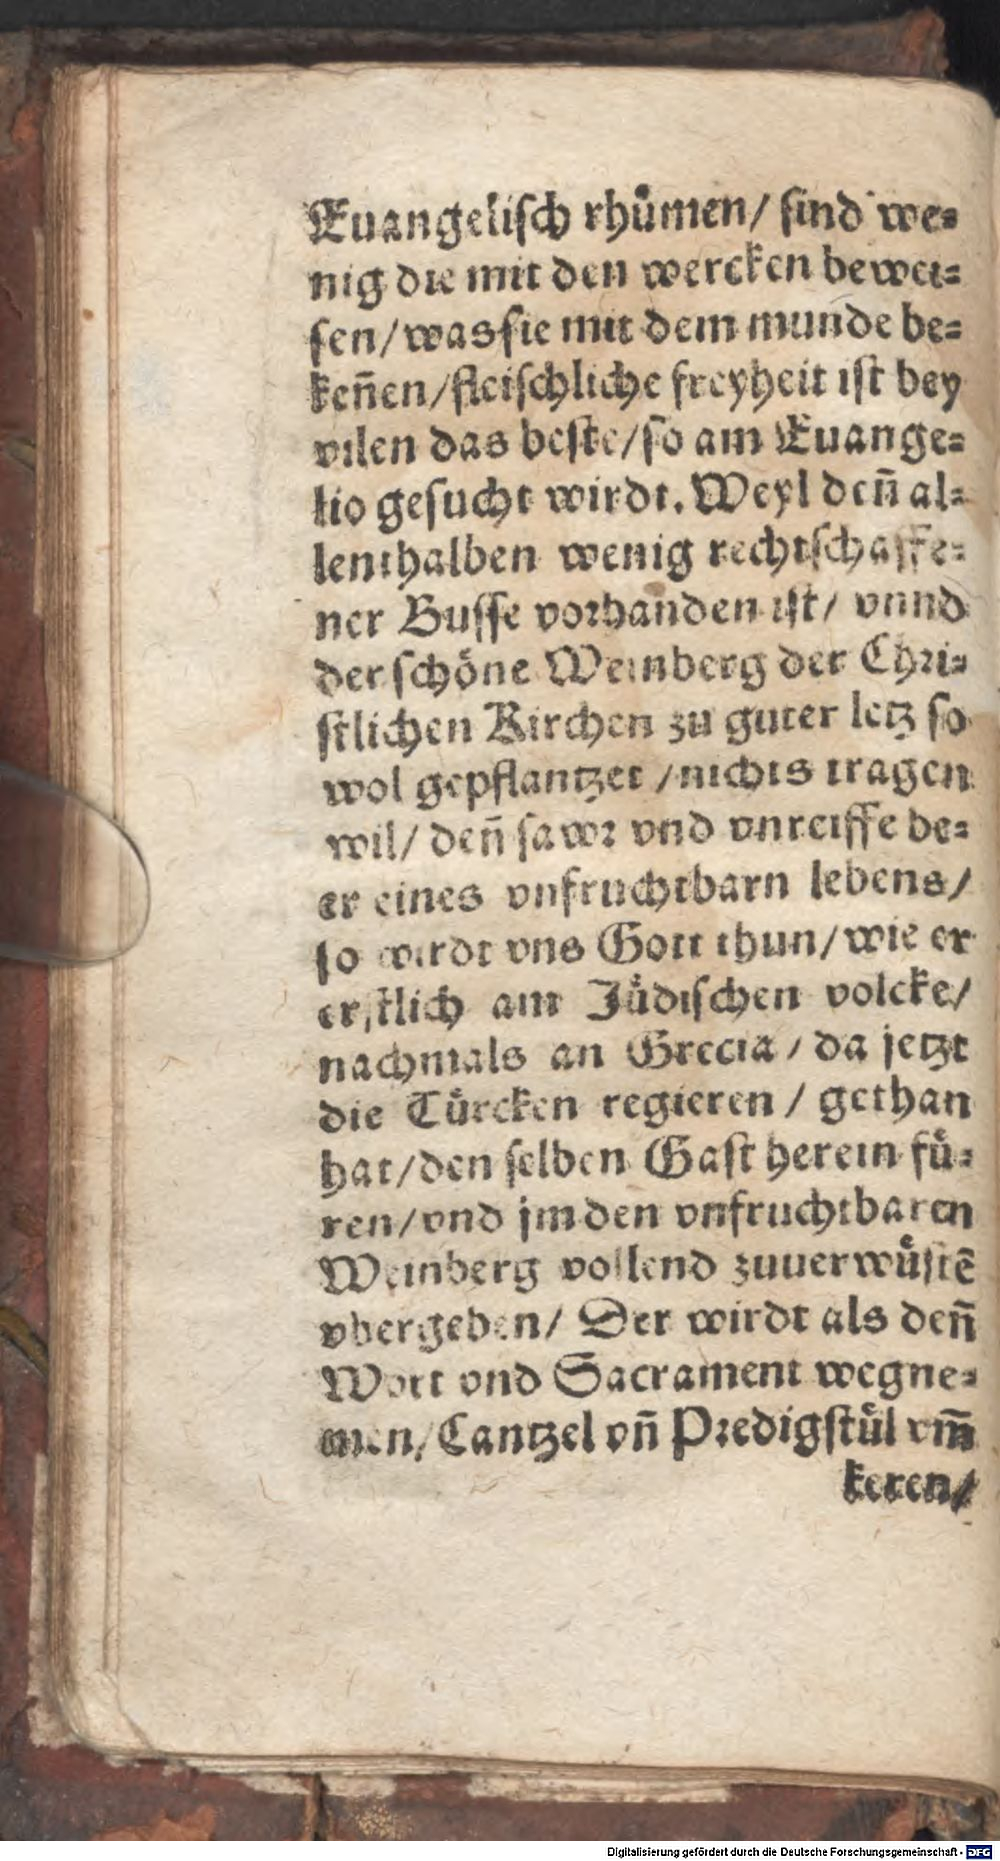 Euangelisch rhuͤmen/ sind we⸗
nig die mit den wercken bewei⸗
sen/ was sie mit dem munde be⸗
ken̄en/ fleischliche freyheit ist bey
vilen das beste/ so am Euange⸗
lio gesucht wirdt. Weyl den̄ al⸗
lenthalben wenig rechtschaffe⸗
ner Busse vorhanden ist/ vnnd
der schoͤne Weinberg der Chri⸗
stlichen Kirchen zu guter letz so
wol gepflantzet / nichts tragen
wil/ den̄ sawr vnd vnreiffe be⸗
er eines vnfruchtbarn lebens/
so wirdt vns Gott thun/ wie er
erstlich am Juͤdischen volcke/
nachmals an Grecia / da jetzt
die Tuͤrcken regieren / gethan
hat/ den selben Gast herein fuͤ⸗
ren/ vnd jm den vnfruchtbaren
Weinberg vollend zuuerwuͤstē
vbergeben/ Der wirdt als den̄
Wort vnd Sacrament wegne⸗
men/ Cantzel vn̄ Predigstuͤl vm̄
keren/
Digitalisierung gefördert durch die Deutsche Forschungsgemeinschaft - DFG